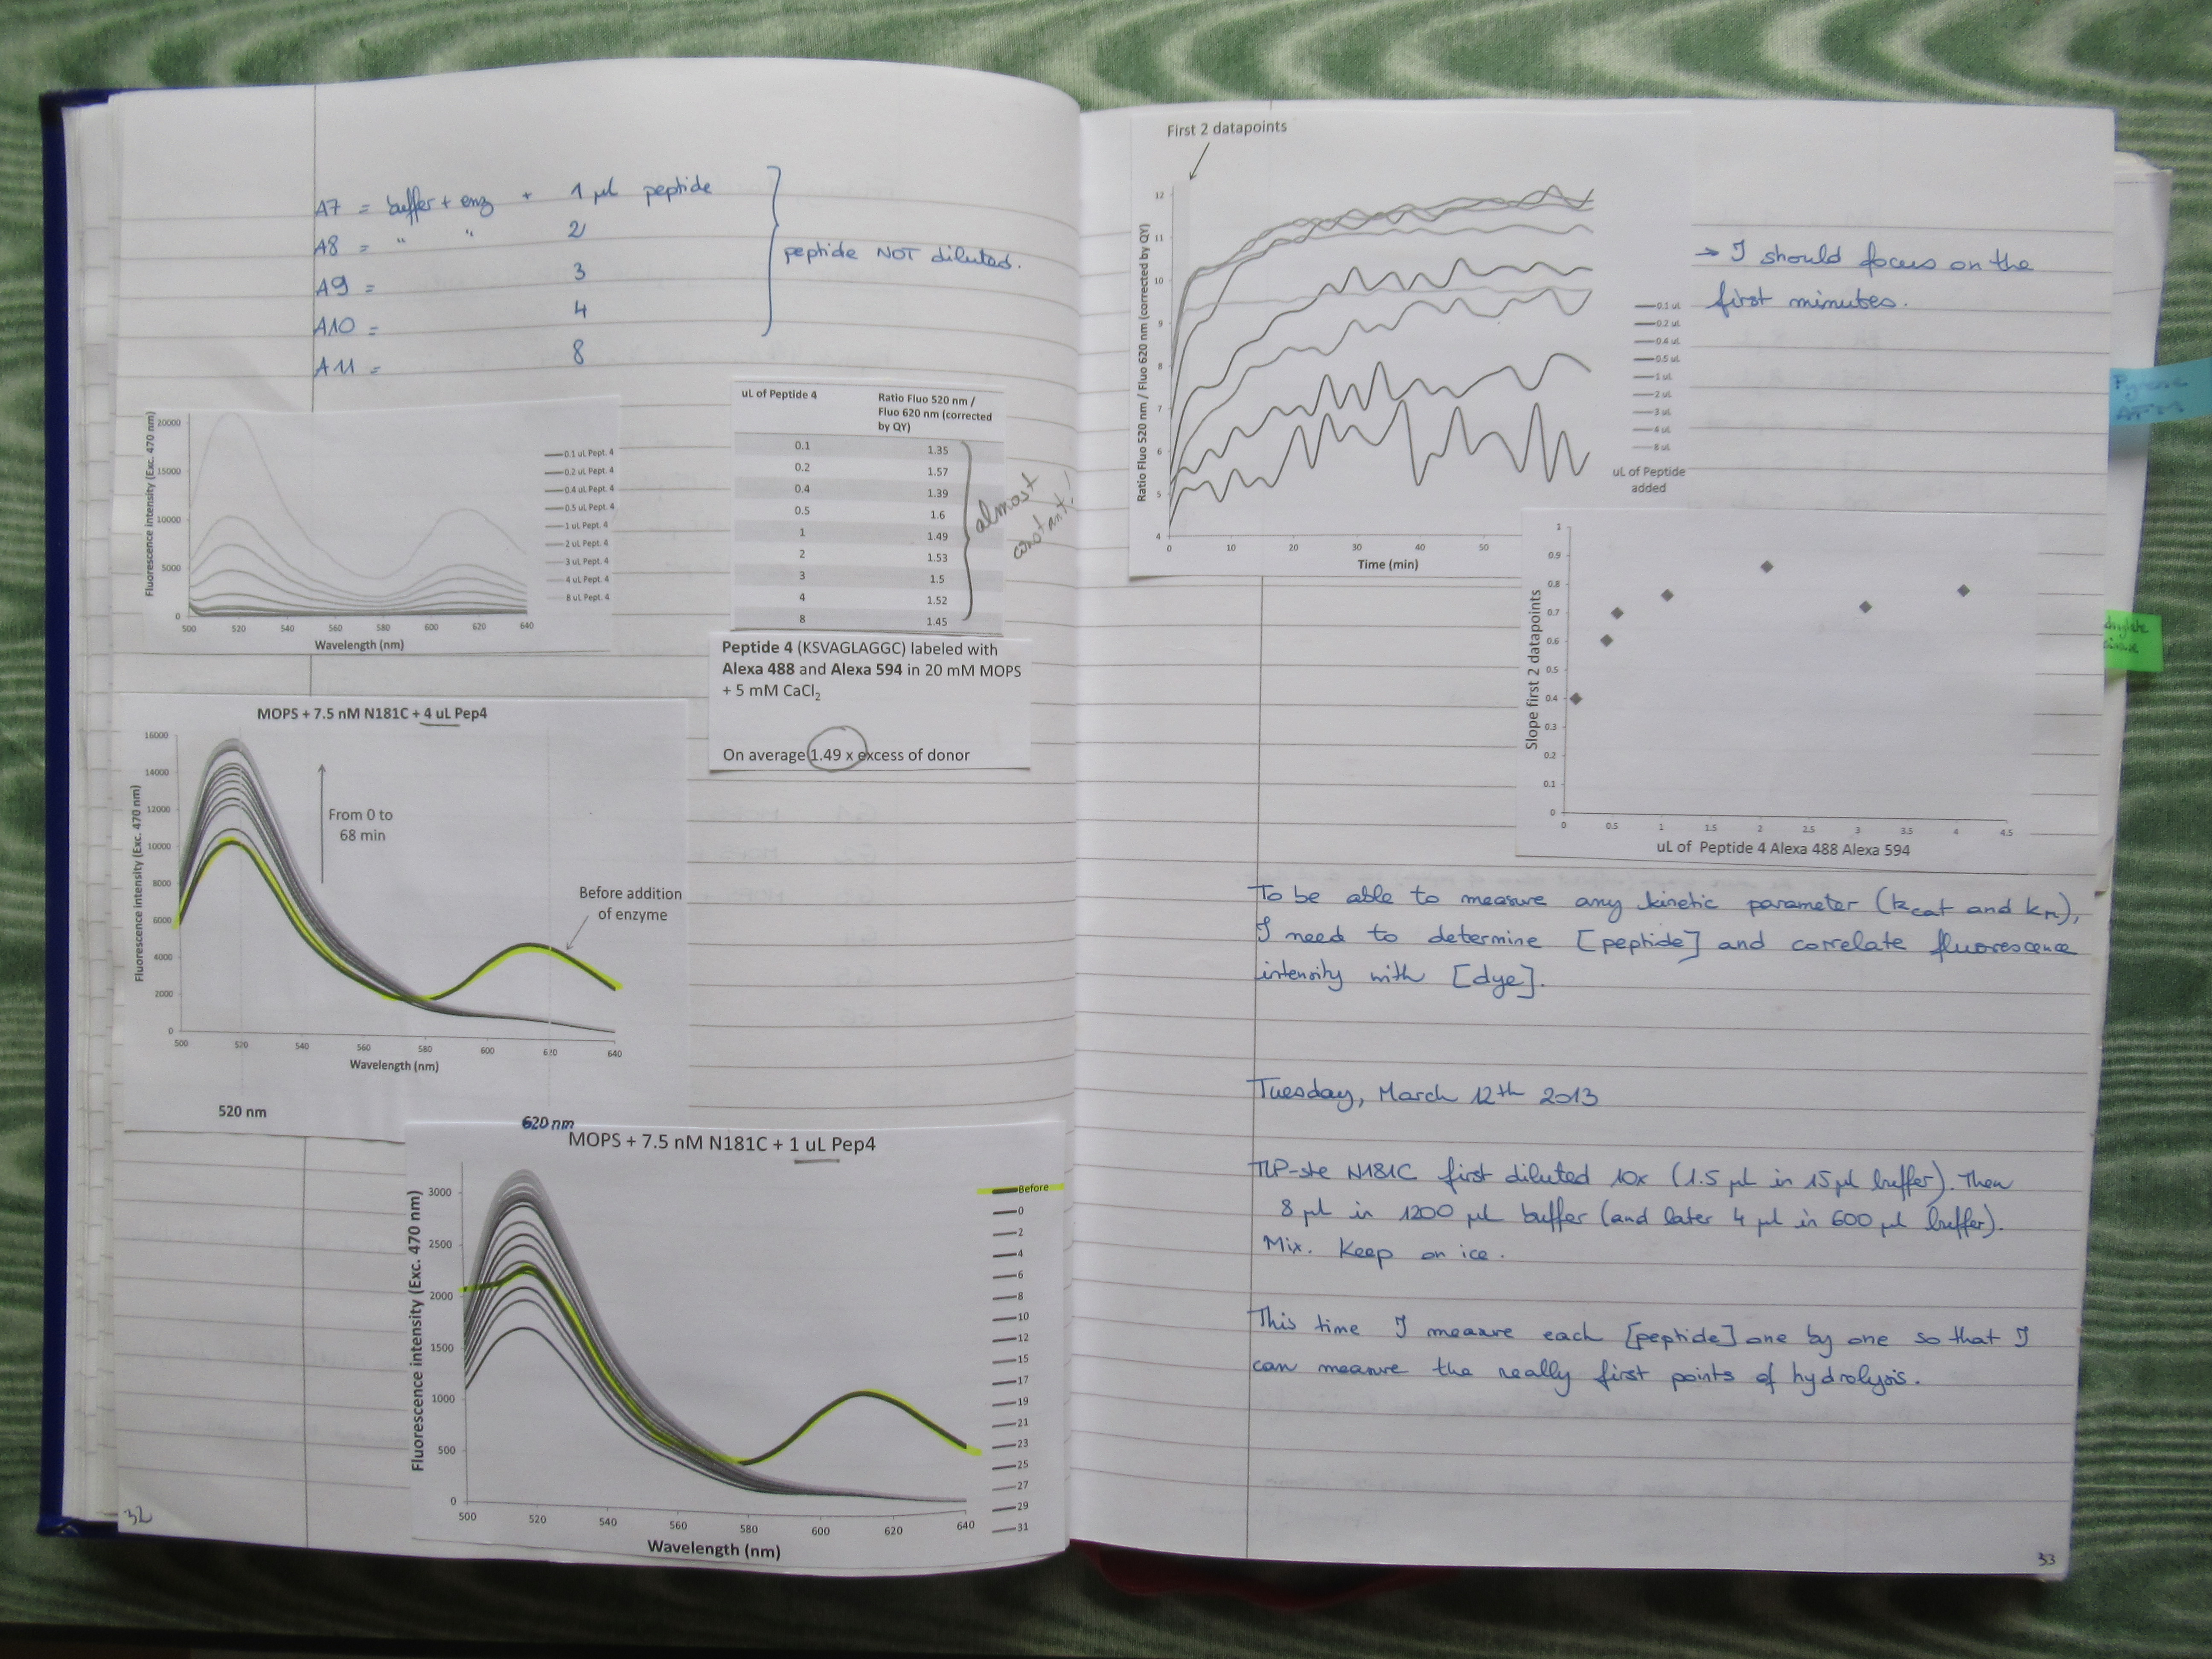 A7 = buffer + enz + 1 µl peptide
A8 = " " 2
A9 = 3
A10 = 4
A11 = 8
peptide NOT diluted.
Fluorescence intensity (Exc. 470 nm)
20000
15000
10000
5000
0
500 520 540 560 580 600 620 640
Wavelength (nm)
0.1 uL Pept. 4
0.2 uL Pept. 4
0.4 uL Pept. 4
0.5 uL Pept. 4
1 uL Pept. 4
2 uL Pept. 4
3 uL Pept. 4
4 uL Pept. 4
8 uL Pept. 4
uL of Peptide 4 Ratio Fluo 520 nm /
Fluo 620 nm (corrected
by QY)
0.1 1.35
0.2 1.57
0.4 1.39
0.5 1.6
1 1.49
2 1.53
3 1.5
4 1.52
8 1.45
almost
constant!
Peptide 4 (KSVAGLAGGC) labeled with
Alexa 488 and Alexa 594 in 20 mM MOPS
+ 5 mM CaCl2
On average 1.49 x excess of donor
MOPS + 7.5 nM N181C + 4 uL Pep4
Fluorescence intensity (Exc. 470 nm)
16000
14000
12000
10000
8000
6000
4000
2000
0
From 0 to
68 min
Before addition
of enzyme
500 520 540 560 580 600 620 640
Wavelength (nm)
520 nm
620 nm
MOPS + 7.5 nM N181C + 1 uL Pep4
Fluorescence intensity (Exc. 470 nm)
3000
2500
2000
1500
1000
500
0
500 520 540 560 580 600 620 640
Wavelength (nm)
Before
0
2
4
6
8
10
12
15
17
19
21
23
25
27
29
31
32
First 2 datapoints
Ratio Fluo 520 nm / Fluo 620 nm (corrected by QY)
12
11
10
9
8
7
6
5
4
0 10 20 30 40 50
Time (min)
0.1 uL
0.2 uL
0.4 uL
0.5 uL
1 uL
2 uL
3 uL
4 uL
8 uL
uL of Peptide
added
→ I should focus on the
first minutes.
Slope first 2 datapoints
1
0.9
0.8
0.7
0.6
0.5
0.4
0.3
0.2
0.1
0
0 0.5 1 1.5 2 2.5 3 3.5 4 4.5
uL of Peptide 4 Alexa 488 Alexa 594
To be able to measure any kinetic parameter (kcat and km),
I need to determine [peptide] and correlate fluorescence
intensity with [dye].
Tuesday, March 12th 2013
TLP-ste N181C first diluted 10x (1.5 µl in 15 µl buffer). Then
8 µl in 1200 µl buffer (and later 4 µl in 600 µl buffer).
Mix. Keep on ice.
This time I measure each [peptide] one by one so that I
can measure the really first points of hydrolysis.
33
Pyrene
AFM